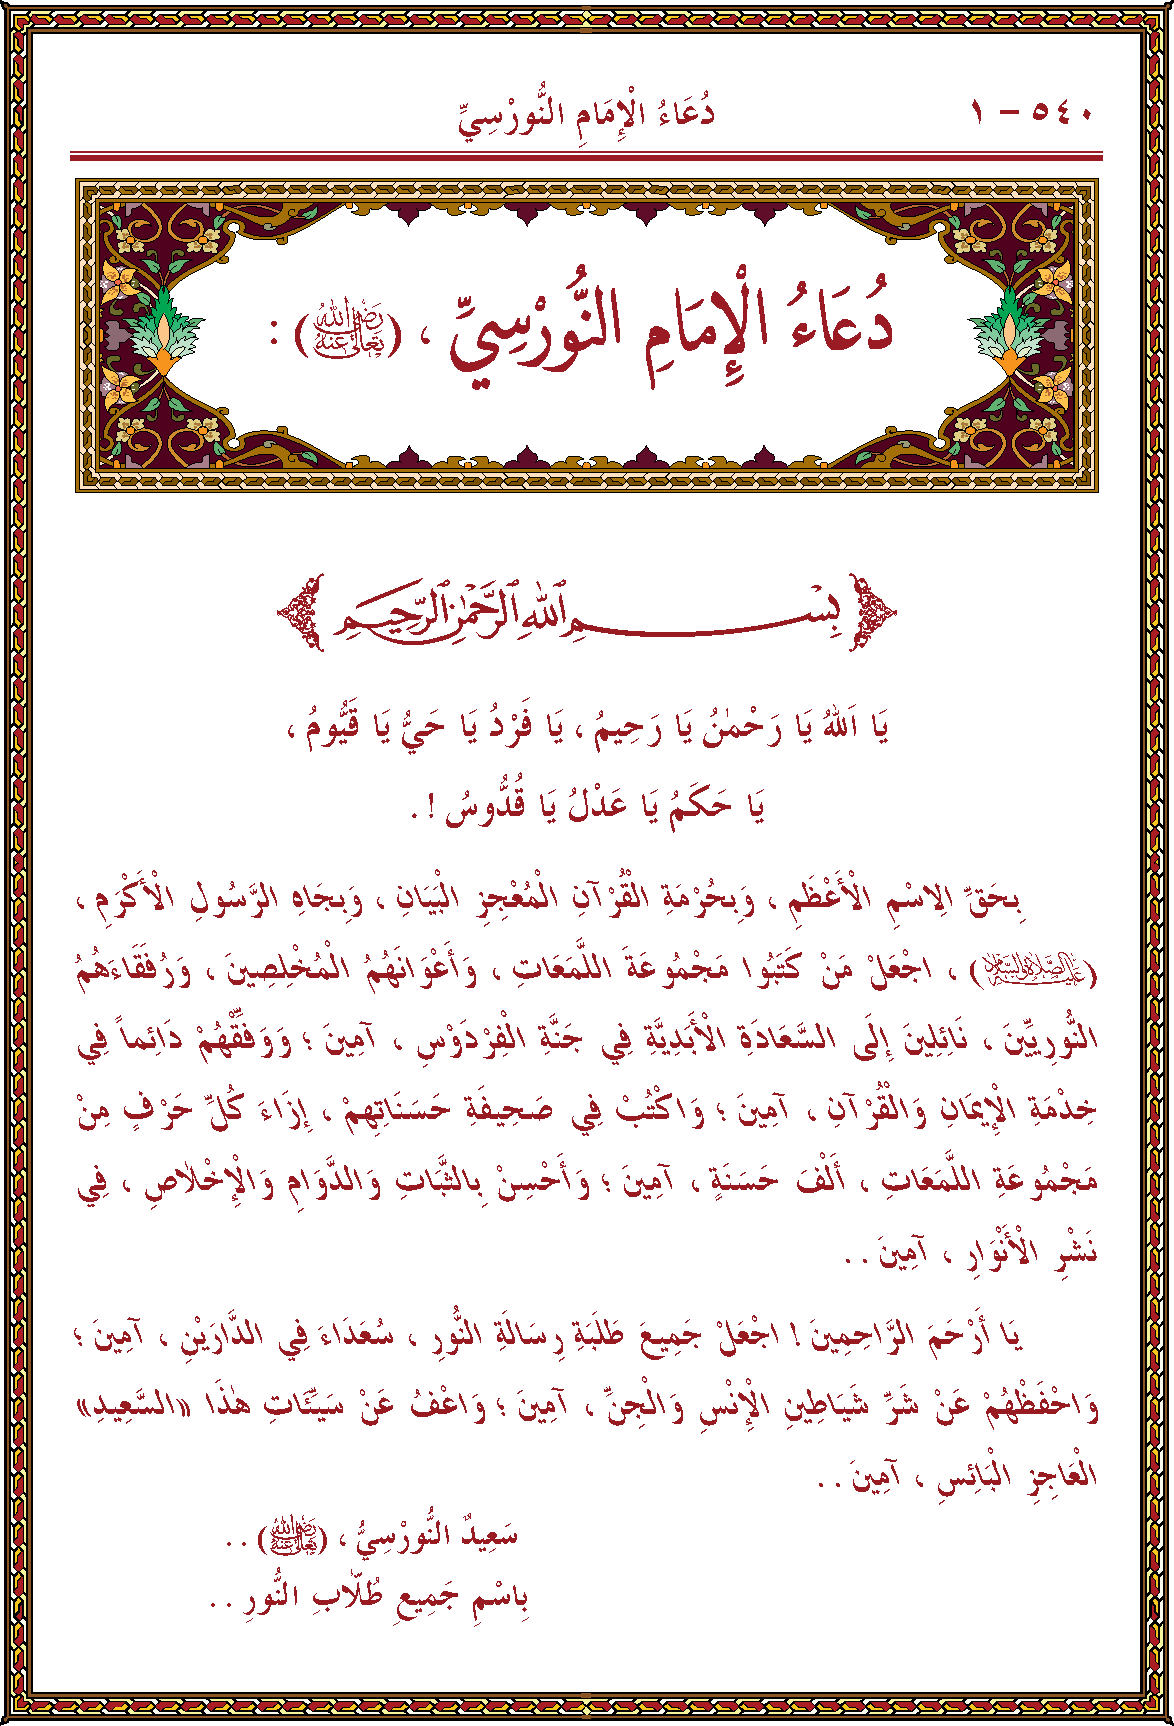 ٥٤٠ – ١
دُعَاءُ الْإِمَامِ النُّورْسِيِّ
دُعَاءُ الْإِمَامِ النُّورْسِيِّ ، (رَضِيَ اللهُ تَعَالَى عَنْهُ) :
بِسْمِ ٱللهِ ٱلرَّحْمٰنِ ٱلرَّحِيمِ
يَا اَللهُ يَا رَحْمٰنُ يَا رَحِيمُ ، يَا فَرْدُ يَا حَيُّ يَا قَيُّومُ ،
يَا حَكَمُ يَا عَدْلُ يَا قُدُّوسُ ! .
بِحَقِّ الِاسْمِ الْأَعْظَمِ ، وَبِحُرْمَةِ الْقُرْآنِ الْمُعْجِزِ الْبَيَانِ ، وَبِجَاهِ الرَّسُولِ الْأَكْرَمِ ،
(عَلَيْهِ الصَّلَاةُ وَالسَّلَامُ) ، اجْعَلْ مَنْ كَتَبُوا مَجْمُوعَةَ اللَّمَعَاتِ ، وَأَعْوَانَهُمُ الْمُخْلِصِينَ ، وَرُفَقَاءَهُمُ
النُّورِيِّينَ ، نَائِلِينَ إِلَى السَّعَادَةِ الْأَبَدِيَّةِ فِي جَنَّةِ الْفِرْدَوْسِ ، آمِينَ ؛ وَوَفِّقْهُمْ دَائِماً فِي
خِدْمَةِ الْإِيمَانِ وَالْقُرْآنِ ، آمِينَ ؛ وَاكْتُبْ فِي صَحِيفَةِ حَسَنَاتِهِمْ ، إِزَاءَ كُلِّ حَرْفٍ مِنْ
مَجْمُوعَةِ اللَّمَعَاتِ ، أَلْفَ حَسَنَةٍ ، آمِينَ ؛ وَأَحْسِنْ بِالثَّبَاتِ وَالدَّوَامِ وَالْإِخْلَاصِ ، فِي
نَشْرِ الْأَنْوَارِ ، آمِينَ . .
يَا أَرْحَمَ الرَّاحِمِينَ ! اجْعَلْ جَمِيعَ طَلَبَةِ رِسَالَةِ النُّورِ ، سُعَدَاءَ فِي الدَّارَيْنِ ، آمِينَ ؛
وَاحْفَظْهُمْ عَنْ شَرِّ شَيَاطِينِ الْإِنْسِ وَالْجِنِّ ، آمِينَ ؛ وَاعْفُ عَنْ سَيِّئَاتِ هٰذَا «السَّعِيدِ»
الْعَاجِزِ الْبَائِسِ ، آمِينَ . .
سَعِيدٌ النُّورْسِيُّ ، (رَضِيَ اللهُ تَعَالَى عَنْهُ) . .
بِاسْمِ جَمِيعِ طُلَّابِ النُّورِ . .